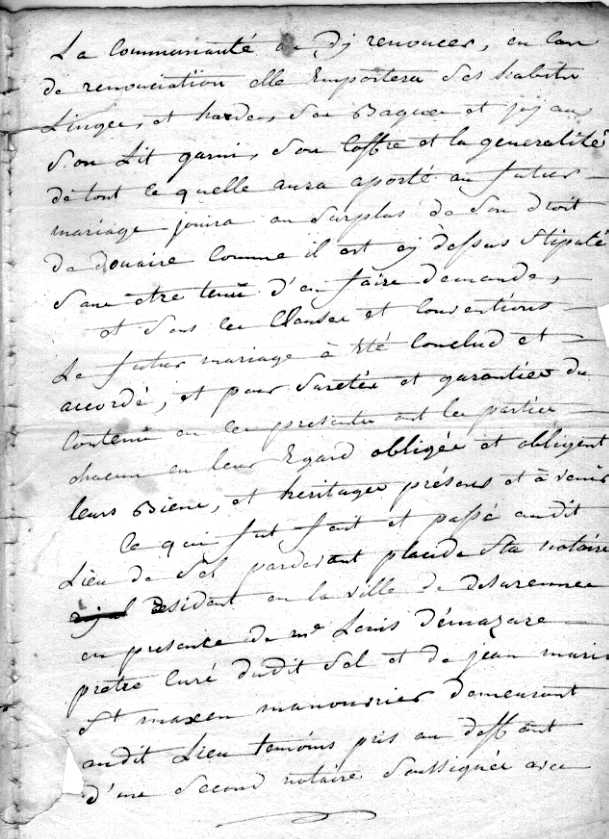 La communauté ou dy renoncer, en cas
de renonciation elle Emportera ses habits
Linges, et hardes, ses Bagues et joyaux
son Lit garni, son Coffre et la generalité
de tout ce quelle aura aporté au futur
mariage jouira au surplus de son droit
de douaire comme il est cy dessus stipulé
sans etre tenue d'en faire demande,
et sous ces Clauses et Conventions
Le futur mariage à été conclud et
accordé, et pour suretés et garanties du
Contenu en ces presentes ont les parties
chacun en leur Egard obligés et obligent
leurs Biens, et heritages présens et à venir
ce qui fut fait et passé audit
Lieu de Sel pardevant placide Sta notaire
résident en la ville de
en presence de me Louis démazure
pretre Curé dudit Sel et de jean marie
St maxen manouvrier demeurant
audit Lieu temoins pris au deffaut
d'une second notaire soussignés avec